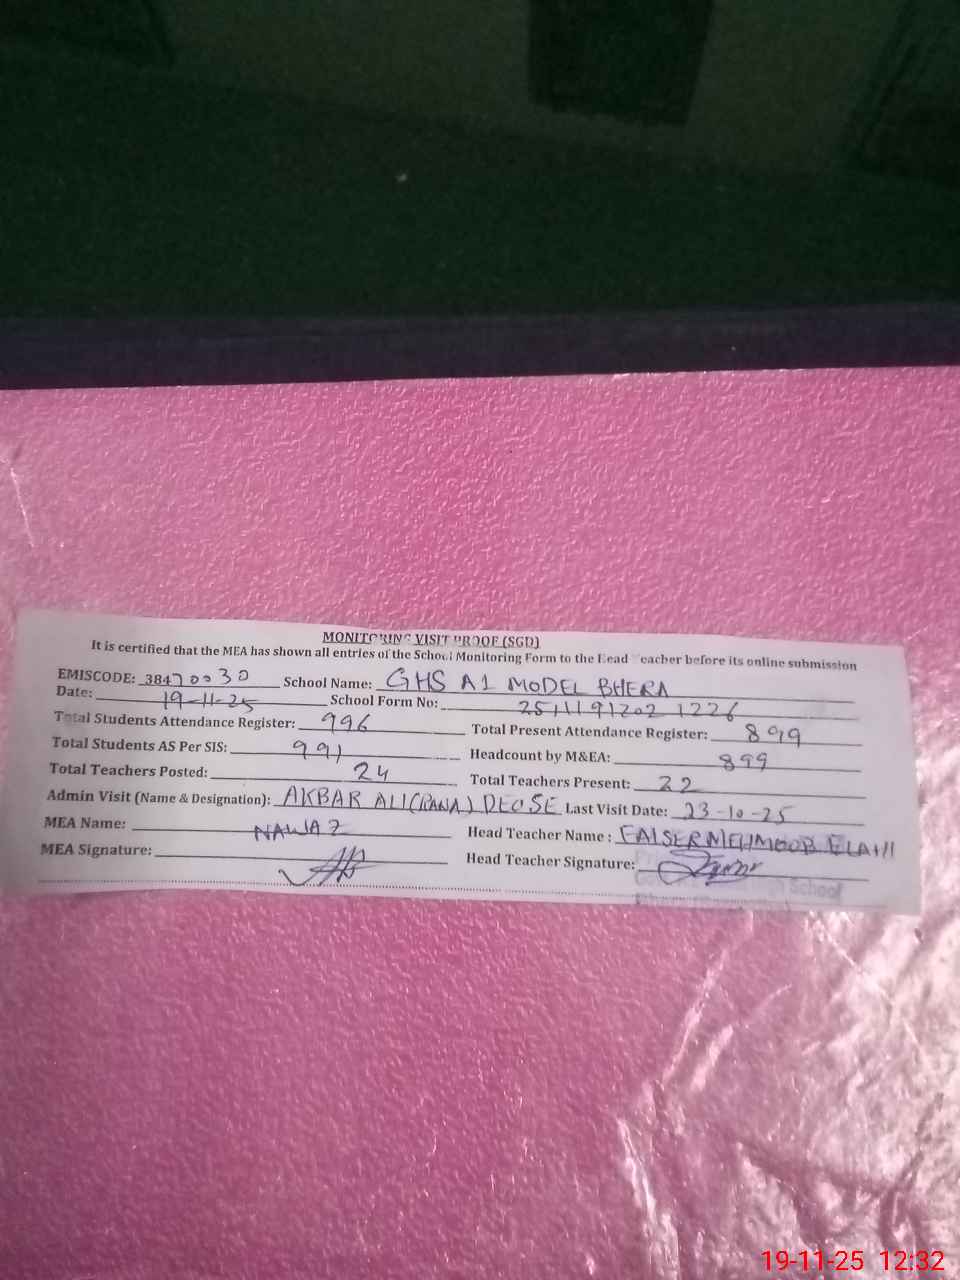 MONITORING VISIT PROOF (SGD)
It is certified that the MEA has shown all entries of the School Monitoring Form to the Head Teacher before its online submission
EMISCODE: 38470030 School Name: GHS A1 MODEL BHERA
Date: 19-11-25 School Form No: 25111912021226
Total Students Attendance Register: 996 Total Present Attendance Register: 899
Total Students AS Per SIS: 991 Headcount by M&EA: 899
Total Teachers Posted: 24 Total Teachers Present: 22
Admin Visit (Name & Designation): AKBAR ALI (RANA) DEOSE Last Visit Date: 23-10-25
MEA Name: NAWAZ Head Teacher Name: ELAHI
MEA Signature: Head Teacher Signature:
High School
19-11-25 12:32